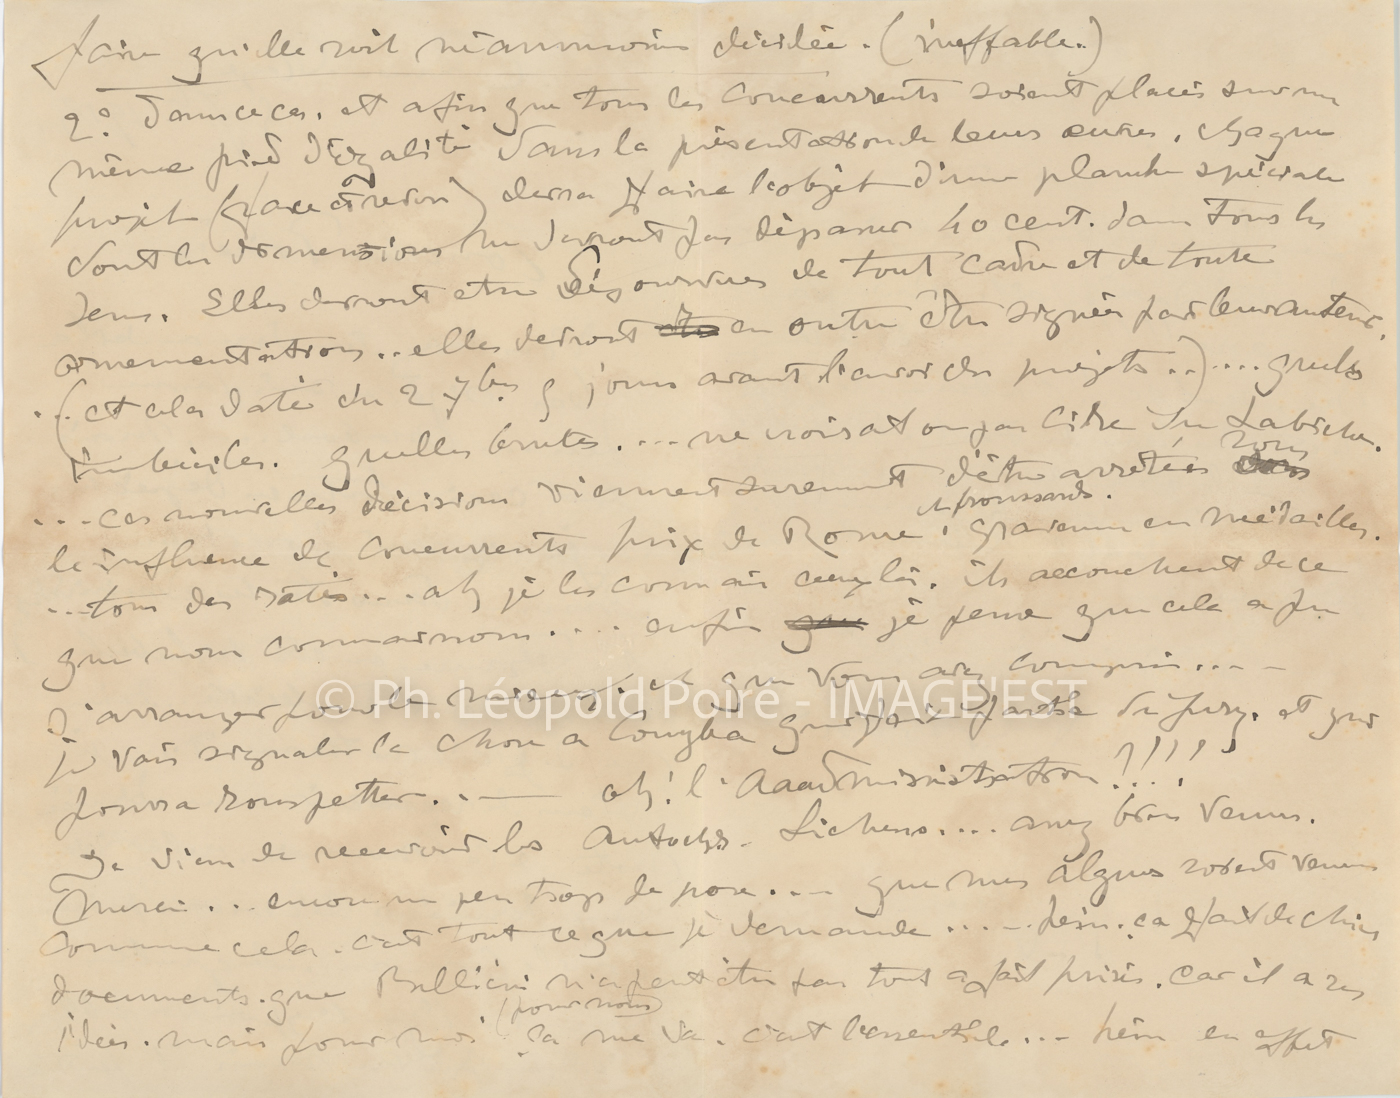 faire qu'elle soit néanmoins décidée. (ineffable.)
2° Dans ce cas, et afin que tous les concurrents soient placés sur un
même pied d'égalité dans la présentation de leurs œuvres, chaque
projet (face et revers) devra faire l'objet d'une planche spéciale
dont les dimensions ne devront pas dépasser 40 cent. dans tous les
sens. Elles devront etre dépourvues de tout cadre et de toute
ornementations.. elles devront en outre être signées par leur auteur.
...(et cela daté du 2 7bre 9 jours avant l'envoi des projets...)....quels
imbéciles. quelles brutes.... ne croirait on pas lire du Labiche.
...ces nouvelles décisions viennent surement d'être arretées sous
le influence de concurrents prix de Rome, graveur en médailles.
et froussards.
...tous des ratés... ah je les connais ceux là. ils accouchent de ce
que nous connaissons.... enfin je pense que cela a pu
s'arranger pour le mieux, et que vous avez compris....
je vais signaler la chose a Couyba qui fait partie du jury. et qui
pourra rouspetter.. — ah! l'Aaadministration!!!!
Je viens de recevoir les Autochs. Lichens.... assez bien venus.
Merci... encore un peu trop de pose... que mes algues soient venues
comme cela. c'est tout ce que je demande..... hein. ça fait de chics
documents. que Bellieni n'a peut être pas tout a fait prisés. car il a ses
idées. mais pour moi (pour nous) ça me va. c'est l'essentiele... hein en effet
© Ph. Léopold Poiré - IMAGE'EST